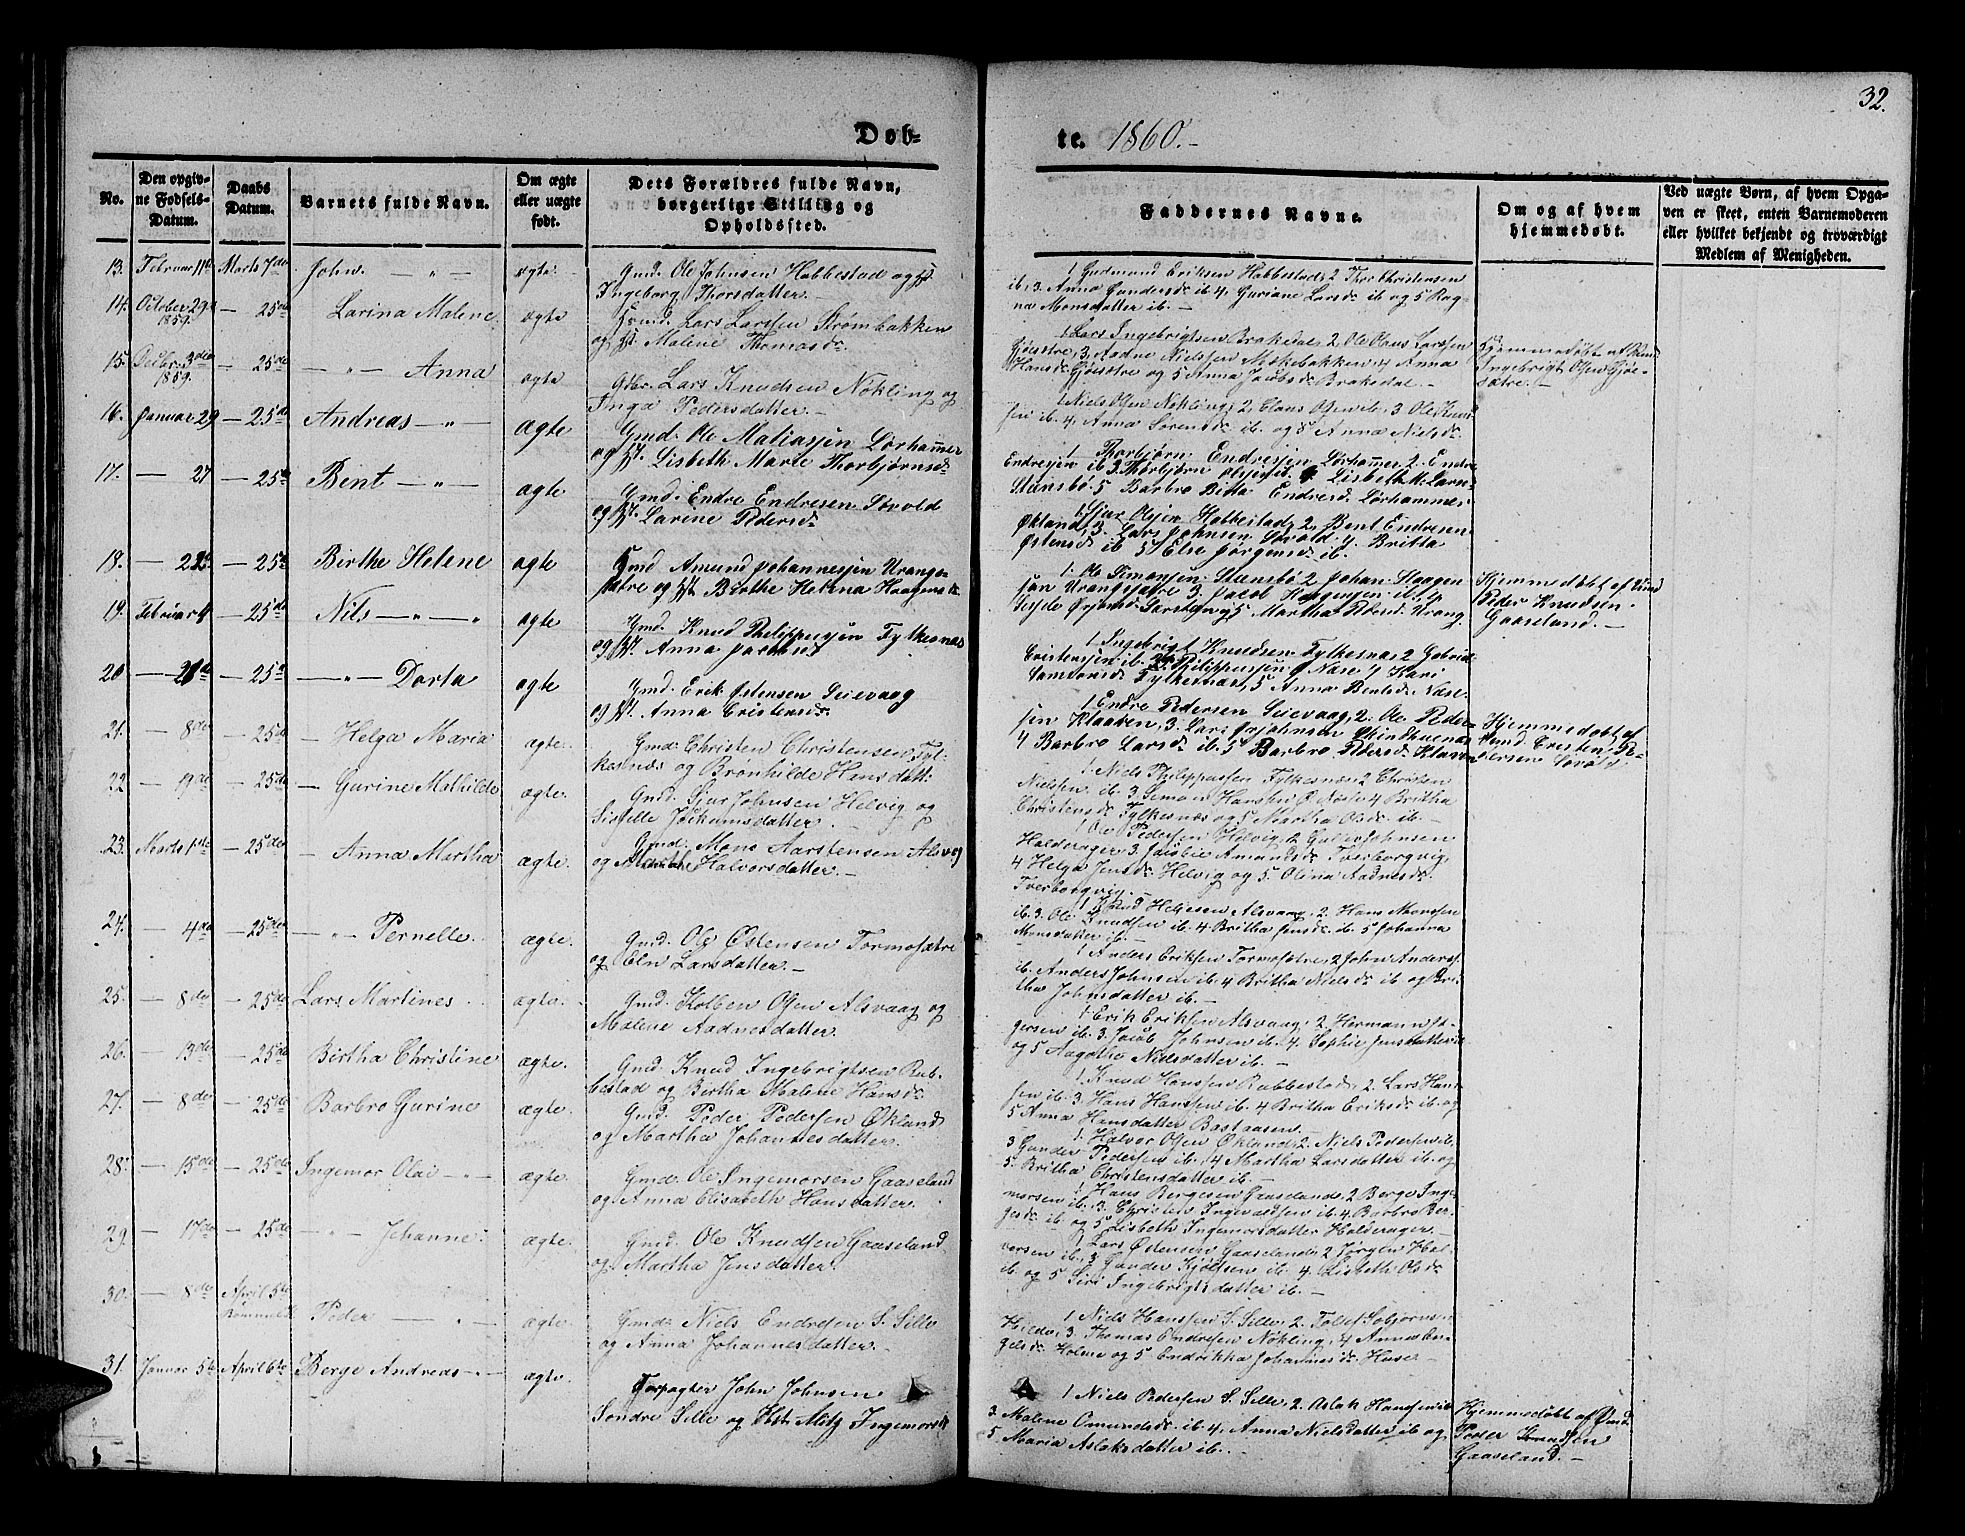 32.
Døb-
te. 1860.-
No.
Den opgiv-
ne Fødsels-
Datum.
Daabs
Datum.
Barnets fulde Navn.
Om ægte
eller uægte
født.
Dets Forældres fulde Navn,
borgerlige Stilling og
Opholdssted.
Faddernes Navne.
Om og af hvem
hjemmedøbt.
Ved uægte Børn, af hvem Opga-
ven er skeet, enten Barnemoderen
eller hvilket bekjendt og troværdigt
Medlem af Menigheden.
13. Februar 11te Marts 7de John. — „ — ægte
Gmd. Ole Johnsen Habbestad og H.
Ingeborg Thorsdatter.—
1 Gudmund Eriksen Habbestad, 2 Thor Christensen
ib. 3. Anna Gundersd. ib 4, Guriane Larsd. ib og 5 Rag-
na Monsdatter ib.—
14. October 29 1859. — 25de Larina Malene ægte
Lars Larssen Strømbakken
og H. Malene Thomasd.
1. Lars Ingebrigtsen Brakedal, 2 Ole Larssen
3, Aadne Nielssen Møkebakken, 4 Anna
Hansd. og 5 Anna Jacobsd. Brakedal.—
Hjemmedøbt af
Ingebrigt Olsen
15. Decbr. 3die 1859. — 25de — „ — Anna ægte
Gbr. Lars Knudsen Nøkling og
Inga Pedersdatter.—
1 Niels Olsen Nøkling, 2, Claus Olsen ib. 3 Ole Knud-
sen ib. 4, Anna Sørensd. ib. og 5 Anna Nielsd.
16. Januar 29 — 25de Andreas — „ — ægte
Gmd. Ole Matiassen Lørhammer
og H. Lisbeth Marie Thorbjørnsd.
1 Thorbjørn Endresen Lørhammer 2. Endre
Endresen ib 3. Thorbjørn Olsen ib. 4 Lisbeth M. Larsd.
Stensbø. 5 Barbro Britta Endresd. Lørhammer.
17. — 27 — 25de Bent — „ — ægte
Gmd. Endre Endresen Sørvold
og H. Larine Pedersd.
1. Sjur Olsen Habbestad, 2, Bent Endresen
Økland, 3. Lars Johnsen Sørvold 4 Britta
Østensd. ib 5 Else Jørgensd. ib.
18. — 22 — 25de Birthe Helene ægte
Gmd Amund Johannessen Urange-
sætre og H. Birthe Helena Haagensd.
1. Ole Simonsen Stensbø 2 Johan Haagen-
sen Urangsætre 3. Jacob Haagensen ib. 4
5 Martha Pedersd. Urang.
Hjemmedøbt af Gmd
Peder Knudsen
Gaaseland.—
19. Februar 4 — 25de Nils — „ — „ ægte
Gmd. Knud Philippussen Fylkesnæs
og H. Anna Jacobsd.
1 Ingebrigt Knudsen Fylkesnæs, 2 Gabriel
Cristensen ib. 3. Philippussen Ø Næse 4 Kari
Samsonsd. Fylkesnæs, 5 Anna Bentsd. Næse.
20 — 21de — 25de — „ — Dorta ægte
Gmd. Erik Østensen Seievaag
og H. Anna Cristensd.
1 Endre Pedersen Seievaag, 2. Ole Peder-
sen Klaaven, 3. Lars
4 Barbro Larsd. ib. 5 Barbro Pedersd. Klaaven
Hjemmedøbt af
Gmd. Cristen Pe-
dersen Sørvold
21. — 8de — 25de — Helga Maria ægte.
Gmd. Christen Christensen, Fyl-
kesnæs og Brønhilde Hensdatt.
1 Niels Philippussen Fylkesnæs, 2 Christen
Nielssen ib. 3 Simon Hanssen Ø Næse 4 Britha
Christensd. Fylkesnæs og 5 Martha Olsd. ib.—
22 — 19de — 25de — Gurine Mathilde ægte.
Gmd. Sjur Johnsen Helvig og
Sissille Jokumsdatter.—
1 Ole Pedersen Helvig, 2 Johnsen
Halderager, 3. Amundsd. Tverborgvig,
4 Helga Jensd. Helvig og 5. Olina Aadnesd.
Tverborgvig.—
23. Marts 1ste — 25de — Anna Martha ægte.
Gmd. Mons Aarstensen Alsvog
og Halvorsdatter.—
1 Knud Heljesen Alsvaag, 2. Hans Monssen
ib. 3. Ole Knudsen ib. 4 Britha Jensd. ib. 5 Johanna
Monsdatter ib.—
24. — 4de — 25de — „ — Pernelle. ægte.
Gmd. Ole Østensen Tormosætre
og Eln Larsdatter.—
1 Anders Eriksen Tormosætre, 2 John Anderss.
ib. Anders Johnsen ib. 4 Britha Nielsd. ib og Bri-
tha Johnsdatter ib.—
25. — 8de — 25de Lars Martines ægte.
Gmd. Kolben Olsen Alsvaag og
Malene Aadnesdatter.
1 Erik Eriksen Alsvaag, 2. Hermann
gersen ib. 3. Jacob Johnsen ib. 4. Sophie Jensdatter ib
og 5 Aagothe Nielsdatter ib.—
26. — 13de — 25de Birtha Christine ægte.
Gmd. Knud Ingebrigtsen Rub-
bestad og Birtha Malene Hansd.
1 Knud Hanssen Rubbestad, 2. Lars Han-
sen ib. 3. Hans Hanssen ib. 4 Britha Eriksd. ib. og
5 Anna Hansdatter Bastaasen.—
27. — 8de — 25de Barbro Gurine ægte.
Gmd. Peder Pedersen Økland
og Martha Johannesdatter.
1. Halvor Olsen Økland, 2. Niels Pedersen ib.
3 Gunder Pedersen ib. 4 Martha Larsdatter ib. og
5. Britha Christensdatter ib.—
28. — 15de — 25de Ingemor Olai — „ — ægte.
Gmd. Ole Ingemorsen Gaaseland
og Anna Elisabeth Hansdatter.
1 Hans Bergesen Gaaseland, 2 Berge Inge-
morsen ib. 3. Christen Ingvaldsen ib. 4. Barbro Ber-
gesd. ib. og 5 Lisbeth Ingemorsdatter Halderager.—
29. — 17de — 25de — „ — Johanne. ægte.
Gmd. Ole Knudsen Gaaseland
og Martha Jensdatter.
1 Lars Østensen Gaaseland, 2 Jørgen Hal-
vorsen ib. 3 Gunder Kjølsen ib. 4. Lisbeth Olsd.
ib. og 5 Siri Ingebrigtsdatter ib.—
30. — 8de April 5te Peder — „ — ægte.
Gmd. Niels Endresen S. Sille
og Anna Johannesdatter.—
1 Niels Hanssen S. Sille, 2. Tollef
3. Thomas Endresen Nøkling, 4 Anna
og 5 Endrikka Johannesd.
31. Januar 5te April 6te Berge Andreas — „ — ægte.
Forpagter John Johnsen
Søndre Sille og Hst. Metg Ingemorsd.
1 Niels Pedersen S. Sille, 2. Aslak Hanssen ib
3. Malene Omundsd. ib. 4, Anna Nielsdatter ib og
5. Maria Aslaksdatter ib.—
Hjemmedøbt af Gmd.
Peder Knudsen
Gaaseland.—